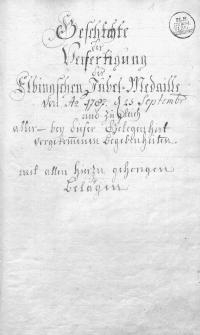 Geschichte
der
Verfertigung
der
Elbingschen Jubel-Medaille
von Ao 1737. d 25 Septembr
und zugleich
aller bey dieser Gelegenheit
vorgekommenen Begebenheiten.
mit allen hierzu gehörigen
Belägen